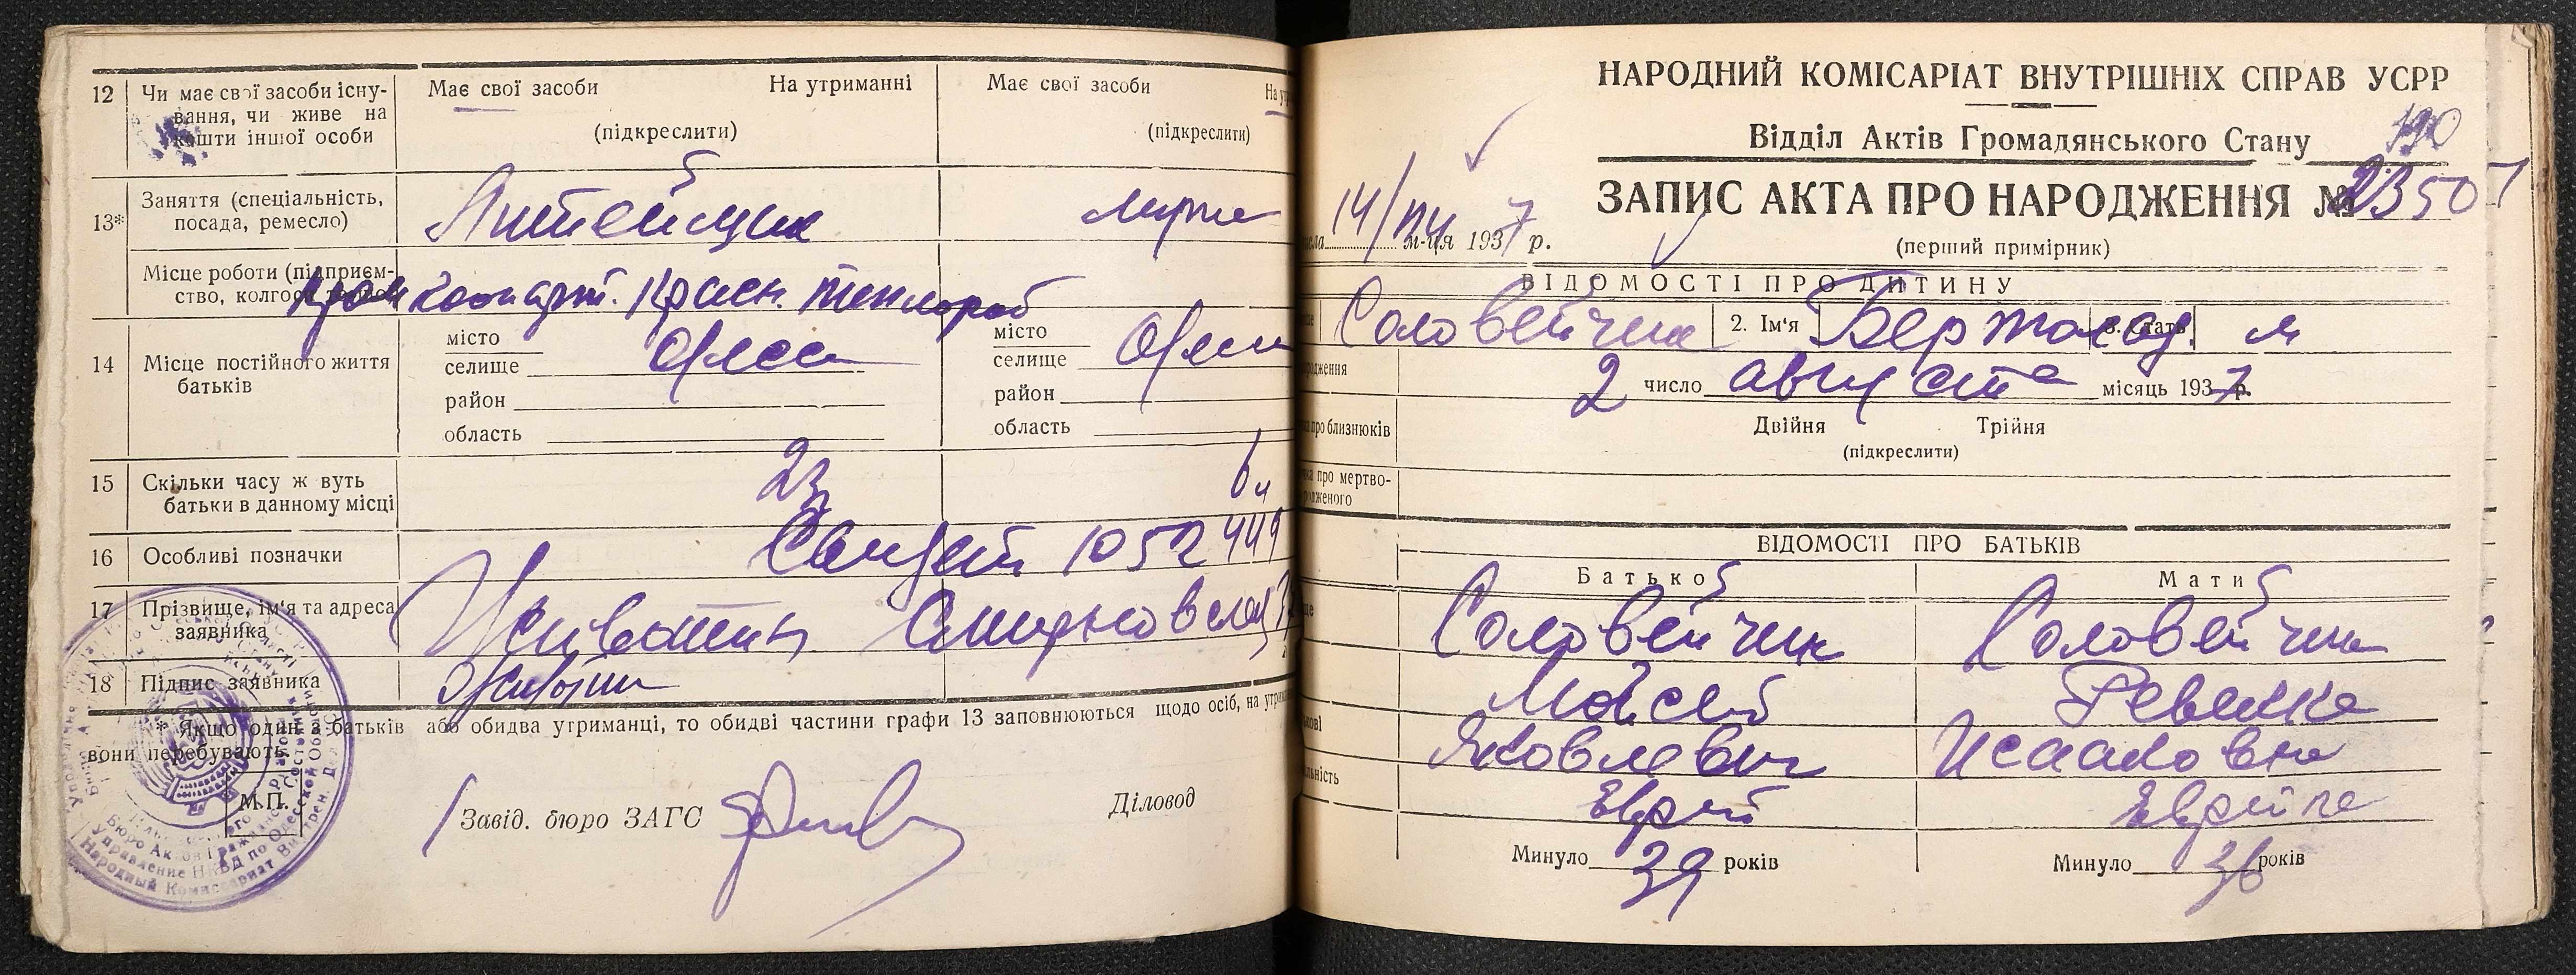 12 Чи має свої засоби існу-
вання, чи живе на
кошти іншої особи
Має свої засоби На утриманні
(підкреслити)
Має свої засоби
(підкреслити)
13* Заняття (спеціальність,
посада, ремесло)
Литейщик
Місце роботи (підприєм-
ство, колгосп
14 Місце постійного життя
батьків
місто
селище Одесса
район
область
місто
селище
район
область
15 Скільки часу ж вуть
батьки в данному місці
16 Особливі позначки
1052449
17 Прізвище, ім'я та адреса
заявника
18 Підпис заявника
* Якщо один з батьків або обидва утриманці, то обидві частини графи 13 заповнюються щодо осіб, на
вони перебувають.
М.П.
Завід. бюро ЗАГС
Діловод
НАРОДНИЙ КОМІСАРІАТ ВНУТРІШНІХ СПРАВ УСРР
Відділ Актів Громадянського Стану
190
ЗАПИС АКТА ПРО НАРОДЖЕННЯ №
м-ця 1937 р.
(перший примірник)
ВІДОМОСТІ ПРО ДИТИНУ
Соловейчик 2. Ім'я Бертольд. 3. Стать м
2 число августа місяць 1937 р.
про близнюків
Двійня Трійня
(підкреслити)
про мертво-
ВІДОМОСТІ ПРО БАТЬКІВ
Батько Мати
Соловейчик Соловейчик
Мойсей Ревекка
Яковлевич Исааковна
Еврей Еврейка
Минуло 39 років Минуло 36 років